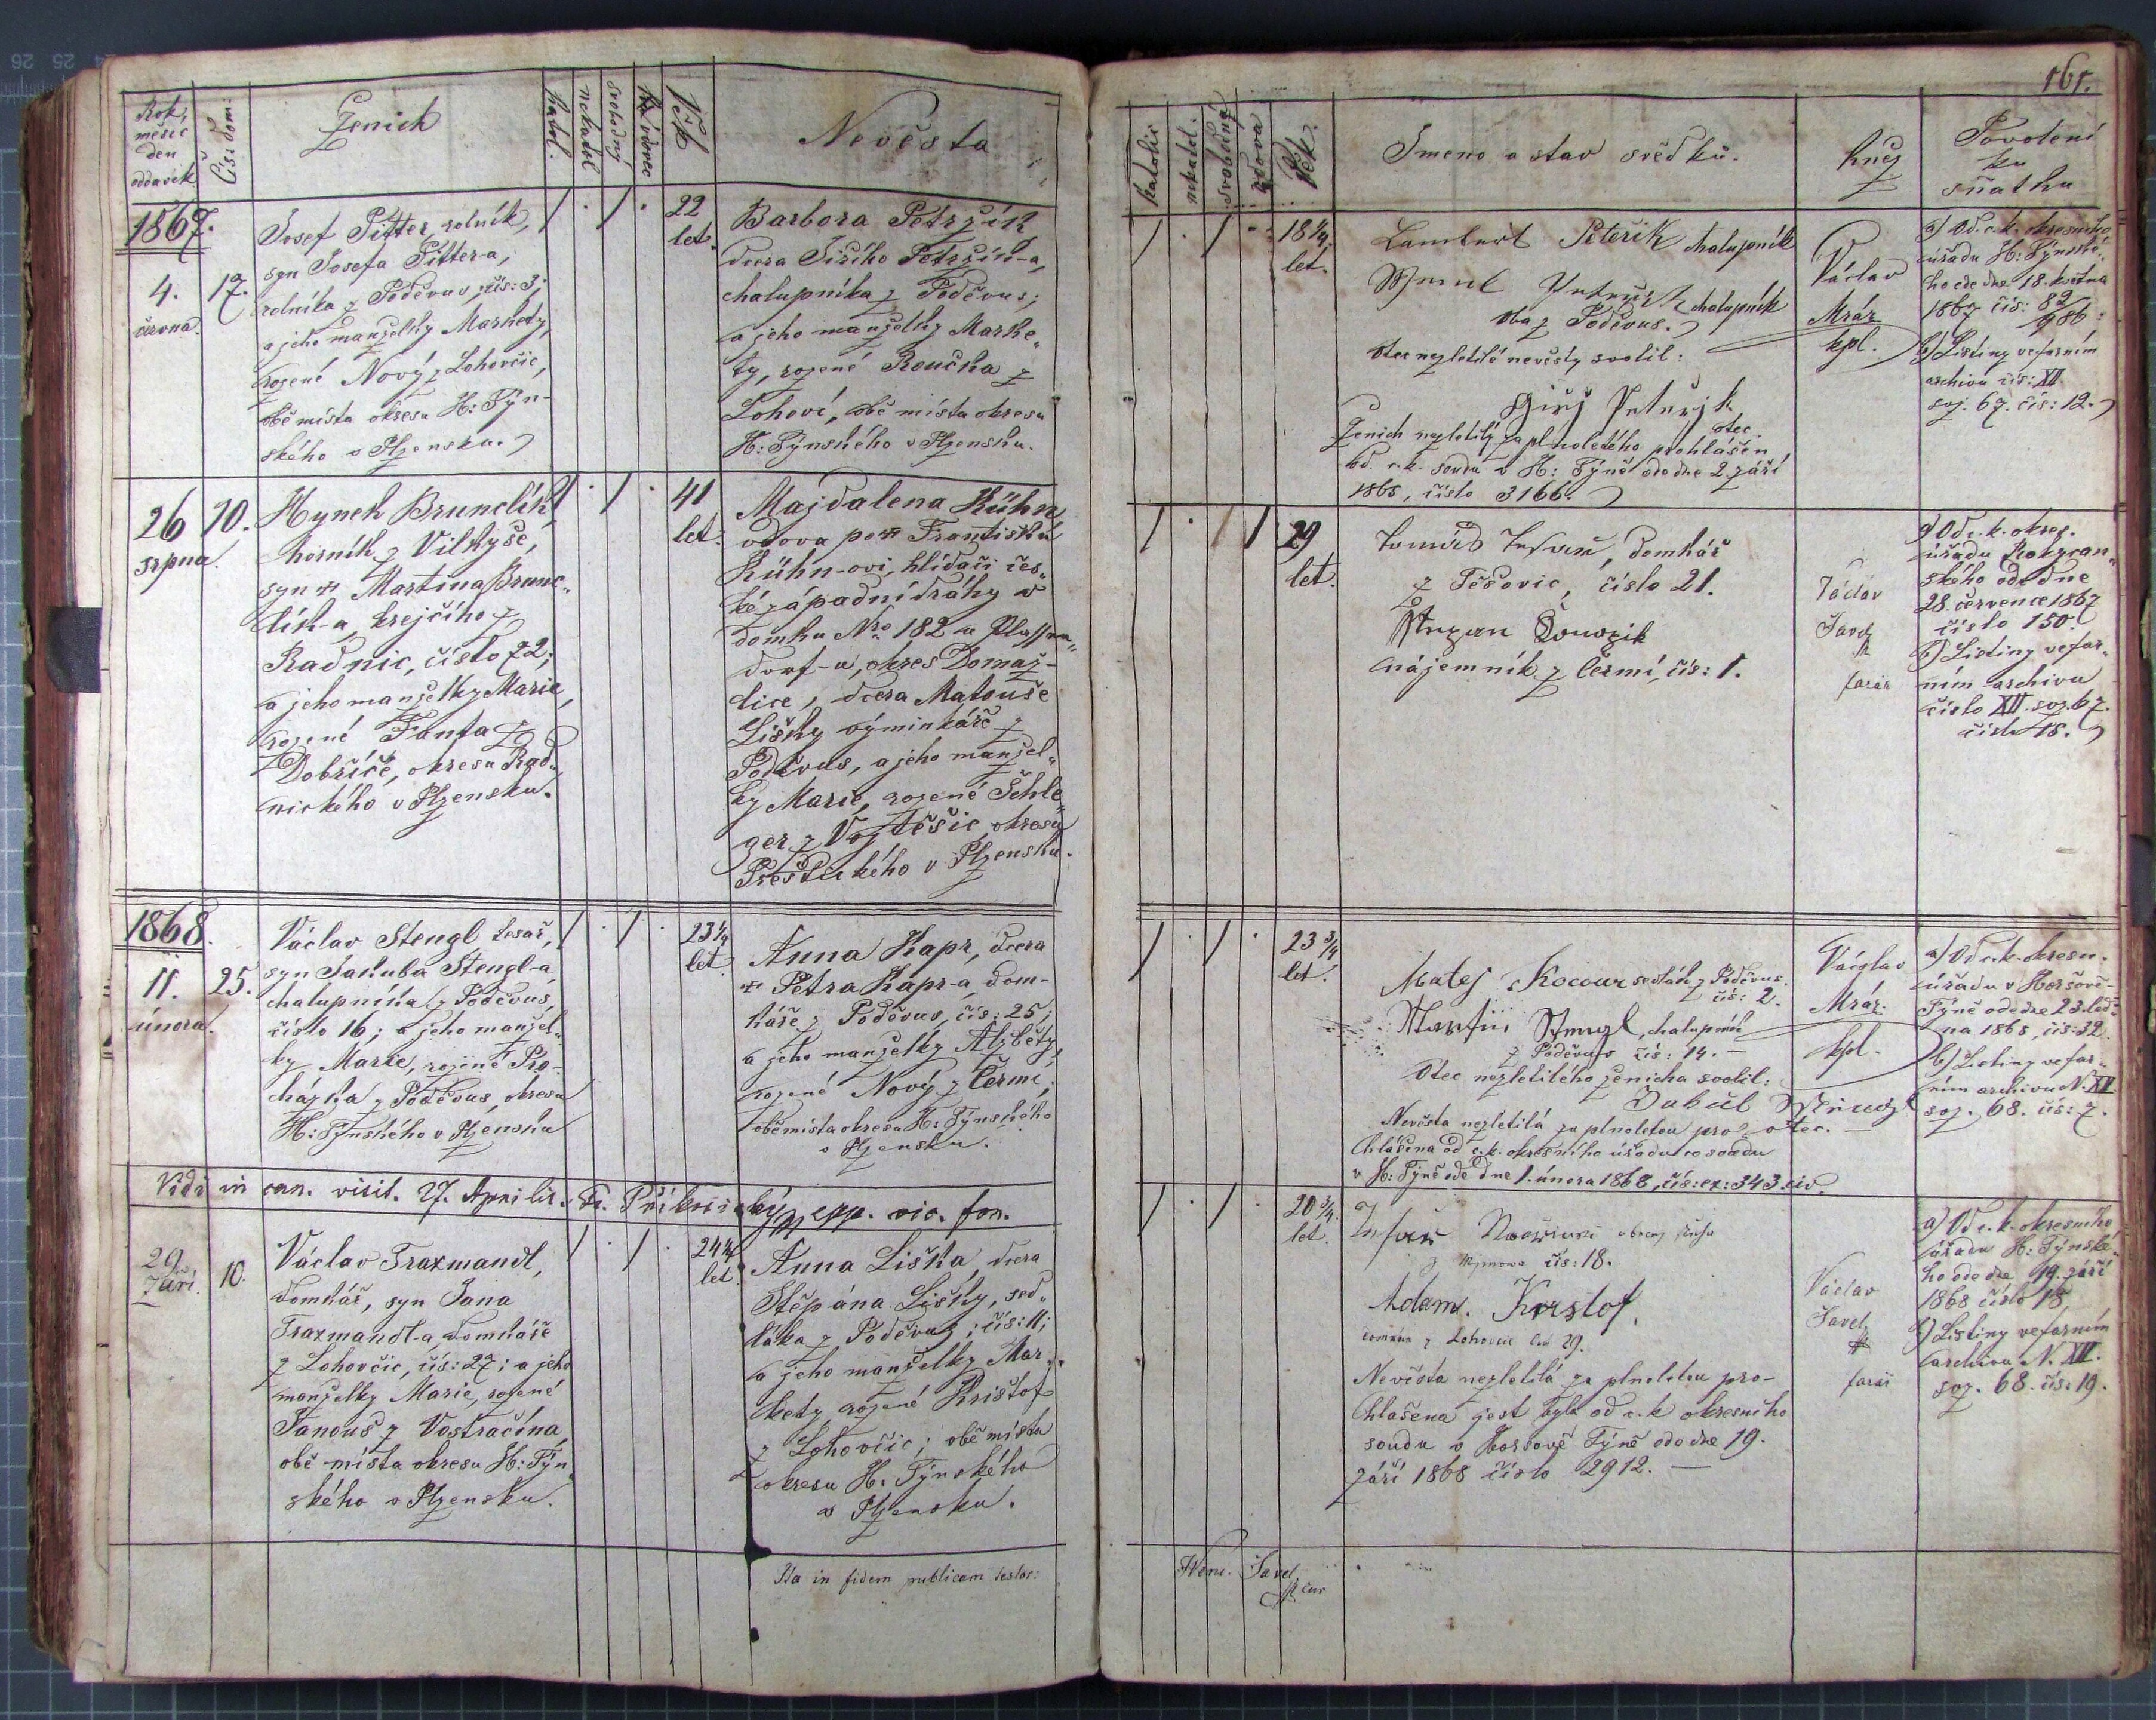 161.
Rok, měsíc den oddavek
Čís: dom:
Ženich
katol.
nekatol
svobodný
vdovec
Věk
Nevěsta
katolic
nekatol.
svobodná
vdova
Věk.
Jmeno a stav svědků.
kněz
Povolení
ku
sňatku
1867.
4.
června.
17.
Josef Pitter, rolník,
syn Josefa Pitter-a,
rolníka z Poděvus, čís: 3;
a jeho manželky Markety,
rozené Nový z Lohovčic,
obě místa okresu H: Týn-
ského v Plzensku.
22
let.
Barbora Petržík
dcera Jiřího Petržík-a,
chalupníka z Poděvus;
a jeho manželky Marke„
ty, rozené Roučka z
Lohoví, obě místa okresu
H: Týnského v Plzensku.
18 1/4
let.
Lambert Peteřik chalupník
chalupník
oba z Poděvus.
Otec nezletilé nevěsty svolil:
otec.
Ženich nezletilý za plnoletého prohlášen
od c. k. soudu v H: Týně ode dne 2. září
1865, číslo 3166.
Václav
Mráz
kpl.
a) Od c. k. okresního
úřadu H: Týnské„
ho ode dne 18. května
1867 čís: 82/986.
b) Listiny ve farním
archivu čís: XII.
svz. 67. čís: 12.
26
srpna.
10.
Hynek Brunclík
horník z Vilkyše,
syn † Martina Brunc„
lík-a, krejčího z
Radnic, číslo 72;
a jeho manželky Marie,
rozené Fanta z
Dobříče, okresu Rad„
nického v Plzensku.
41
let.
Majdalena Kühn
vdova po † Františku
Kühn-ovi, hlídači čes„
ké západní dráhy v
domku Nro 182 u
dorf-u, okres Domaž-
lice, dcera Matouše
Lišky výminkáře z
Poděvus, a jeho manžel„
ky Marie, rozené Schle„
ger z Vojtěšic, okresu
Přeštického v Plzensku.
29
let.
domkář
z Těšovic, číslo 21.
nájemník z Čermí, čís: 1.
Václav
Savel
farář
a) Od c. k. okres.
úřadu Rokycan„
ského ode dne
28. července 1867
číslo 150.
b) Listiny ve far„
ním archivu
číslo XII. svz. 67.
číslo 18.
1868.
11.
února.
25.
Václav Stengl, tesař,
syn Jakuba Stengl-a
chalupníka z Poděvus,
číslo 16; a jeho manžel„
ky Marie, rozené Pro-
házka z Poděvus, okresu
H: Týnského v Plzensku
23 1/4
let
Anna Kapr, dcera
† Petra Kapr-a, dom-
káře z Poděvus, čís: 25;
a jeho manželky Alžběty,
rozené Nový z Čermí;
obě místa okresu H: Týnského
v Plzensku.
23 3/4
let.
Matej Kocour sedlák z Poděvus.
čís: 2.
Martin Stengl, chalupník
z Poděvus čís: 14. —
Otec nezletilého ženicha svolil:
Jakub Stengl
otec. —
Nevěsta nezletilá za plnoletou pro-
hlášena od c. k. okresního úřadu co soudu
v H: Týně ode dne 1. února 1868, čís: ex: 343 civ.
Václav
Mráz.
kpl.
a) Od c. k. okresn.
úřadu v Horšově-
Týně ode dne 23. led„
na 1868, čís: 32.
b) Listiny ve far„
ním archivu N. XII
svz. 68. čís: 7.
Vidi in can. visit. 27. Aprilis. Fr. Příkosický epp. vic. for.
29.
Září.
10.
Václav Traxmandl,
domkář, syn Jana
Traxmandl-a, domkáře
z Lohovčic, čís: 27; a jeho
manželky Marie, rozené
Janouš z Vostračína,
obě místa okresu H: Týn„
ského v Plzensku.
24 1/4
let.
Anna Liška, dcera
Štěpána Lišky, sed„
láka z Poděvus; čís: 11;
a jeho manželky Mar„
kety rozené Krištof
z Lohovčic; obě místa
okresu H: Týnského
v Plzensku.
20 3/4.
let.
čís: 18.
Adam. Krstof,
z Lohovčic čís 29.
Nevěsta nezletilá za plnoletou pro-
hlašena jest byla od c. k okresního
soudu v Horšově Týně ode dne 19.
září 1868 číslo 2912. —
Václav
Savel
farář
a) Od c. k. okresního
úřadu H: Týnské„
ho ode dne 19. září
1868 číslo 18
b) Listiny ve farním
archivu N. XII.
svz. 68. čís: 19.
Ita in fidem publicam testor:
Wenc. Savel